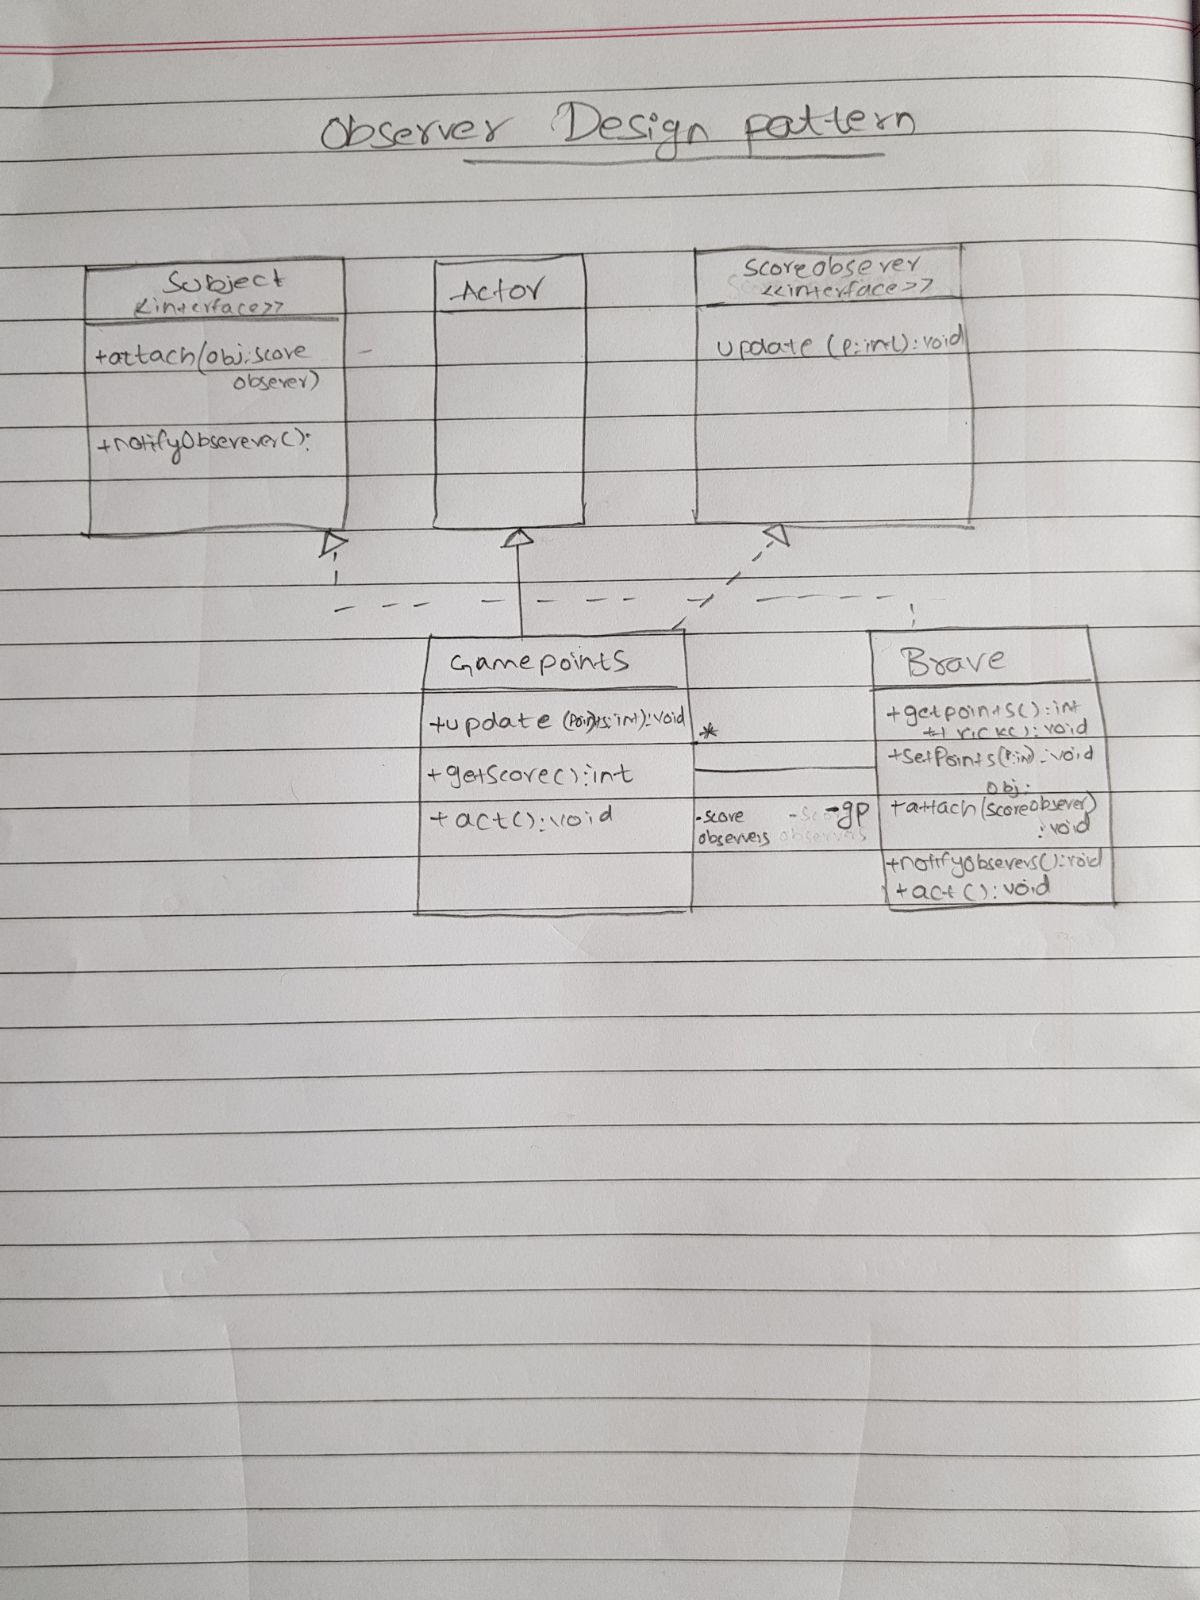 Observer Design pattern
Subject
<<interface>>
+attach(obj:score
obsever)
+notifyObserever():
Actor
scoreobsever
<<interface>>
update (p:int):void
Gamepoints
+update (points:int):void
+getScore():int
+act():void
*
-score
observers
-gp
Brave
+getpoints():int
+kick():void
+setPoints(P:in):void
obj:
+attach(scoreobsever)
:void
+notifyObsevers():void
+act():void